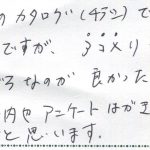 のカタログ(4ﾁﾗｼ)で
ですが、
なのが 良かった
内やアンケートはがき
と思います。